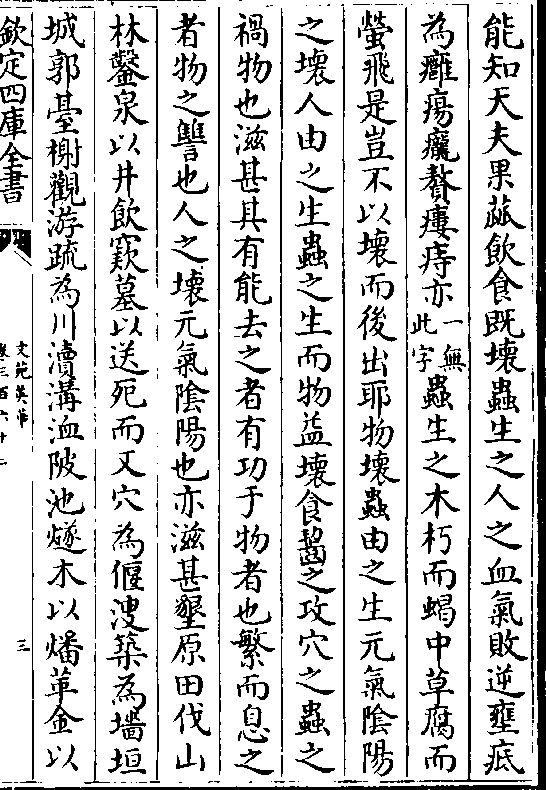 能知天夫果蓏飲食既壞蟲生之人之血氣敗逆壅底
為癰瘍癰贅瘻痔亦一無此字蟲生之木朽而蝎中草腐而
螢飛是豈不以壞而後出耶物壞蟲由之生元氣陰陽
之壞人由之生蟲之生而物益壞食齧之攻穴之蟲之
禍物也滋甚其有能去之者有功于物者也繁而息之
者物之讐也人之壞元氣陰陽也亦滋甚墾原田伐山
林鑿泉以井飲窾墓以送死而又穴為偃溲築為墻垣
城郭臺榭觀游疏為川瀆溝洫陂池燧木以燔革金以
欽定四庫全書
文苑英華
卷三百六十二
三